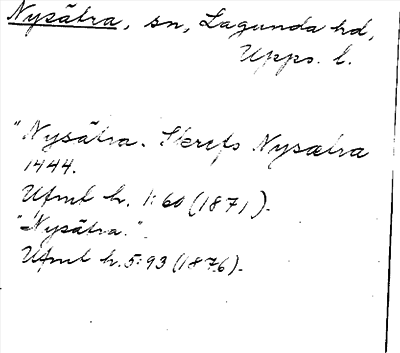 Nysätra, sn, Lagunda hd,
Upps. l.
"Nysätra. Skrefs Nysætra
1444.
Ufmt h. 1:60 (1871).
"Nysätra."
Ufmt h. 5:93 (1876).